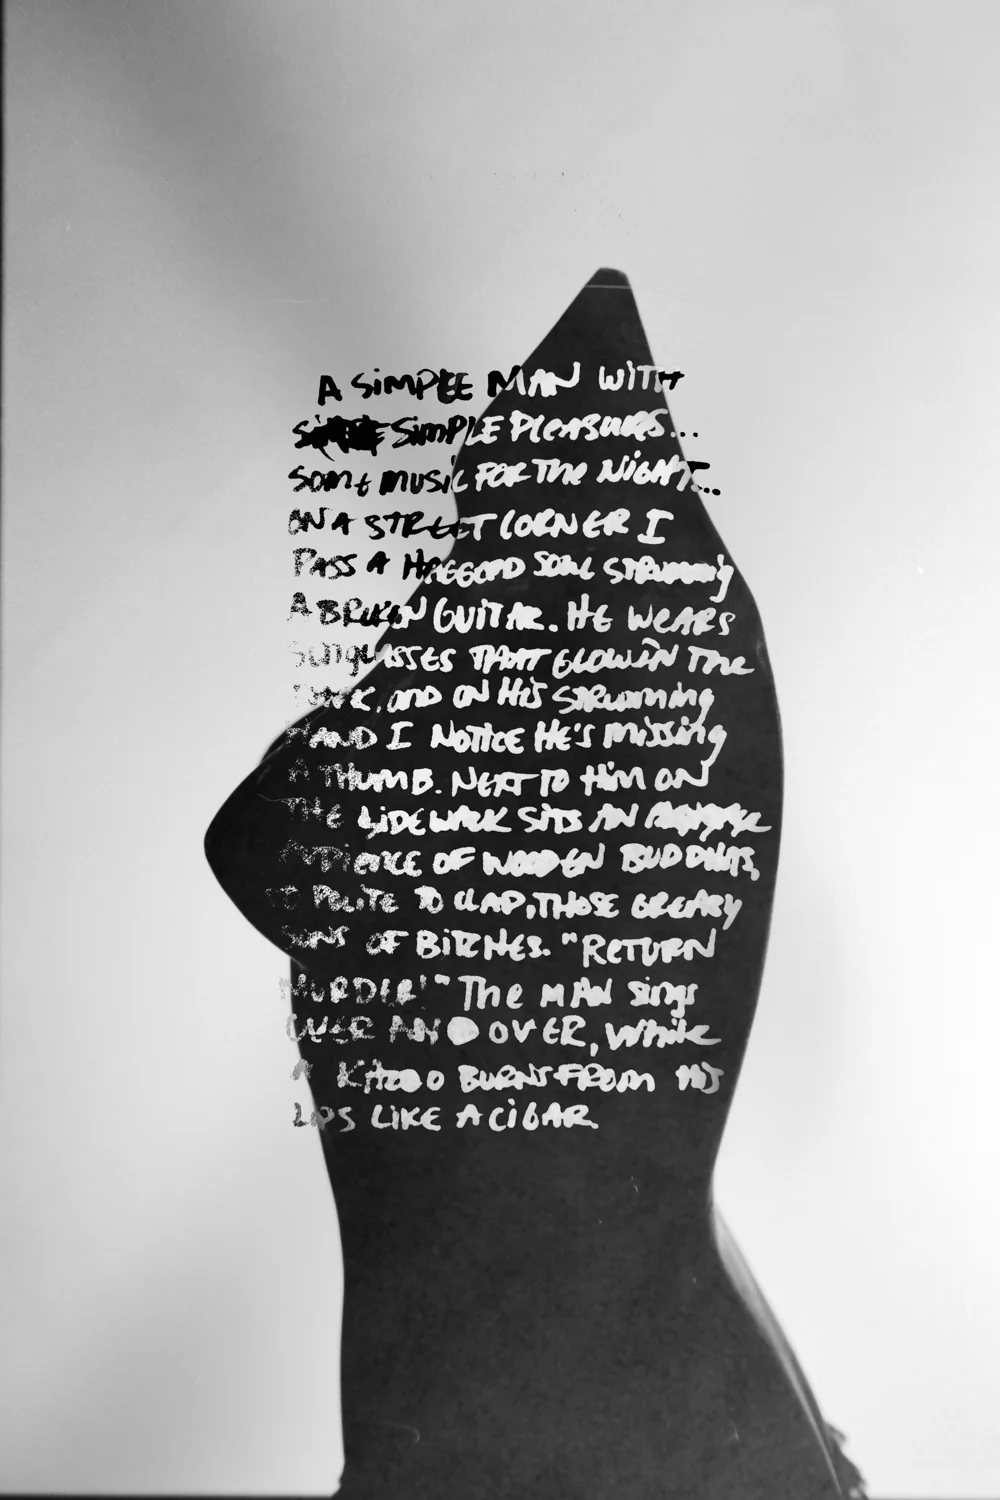 A SIMPLE MAN WITH
SIMPLE PLEASURES...
SOME MUSIC FOR THE NIGHT...
ON A STREET CORNER I
PASS A HAGGARD SOUL STRUMMING
A BROKEN GUITAR. HE WEARS
SUNGLASSES THAT GLOW IN THE
DARK, AND ON HIS STRUMMING
HAND I NOTICE HE'S MISSING
A THUMB. NEXT TO HIM ON
THE SIDEWALK SITS AN
AUDIENCE OF WOODEN BUDDHAS,
POLITE TO CLAP, THOSE GREASY
SONS OF BITCHES. "RETURN
MURDER!" THE MAN SINGS
OVER AND OVER, WHILE
A KAZOO BURNS FROM HIS
LIPS LIKE A CIGAR.